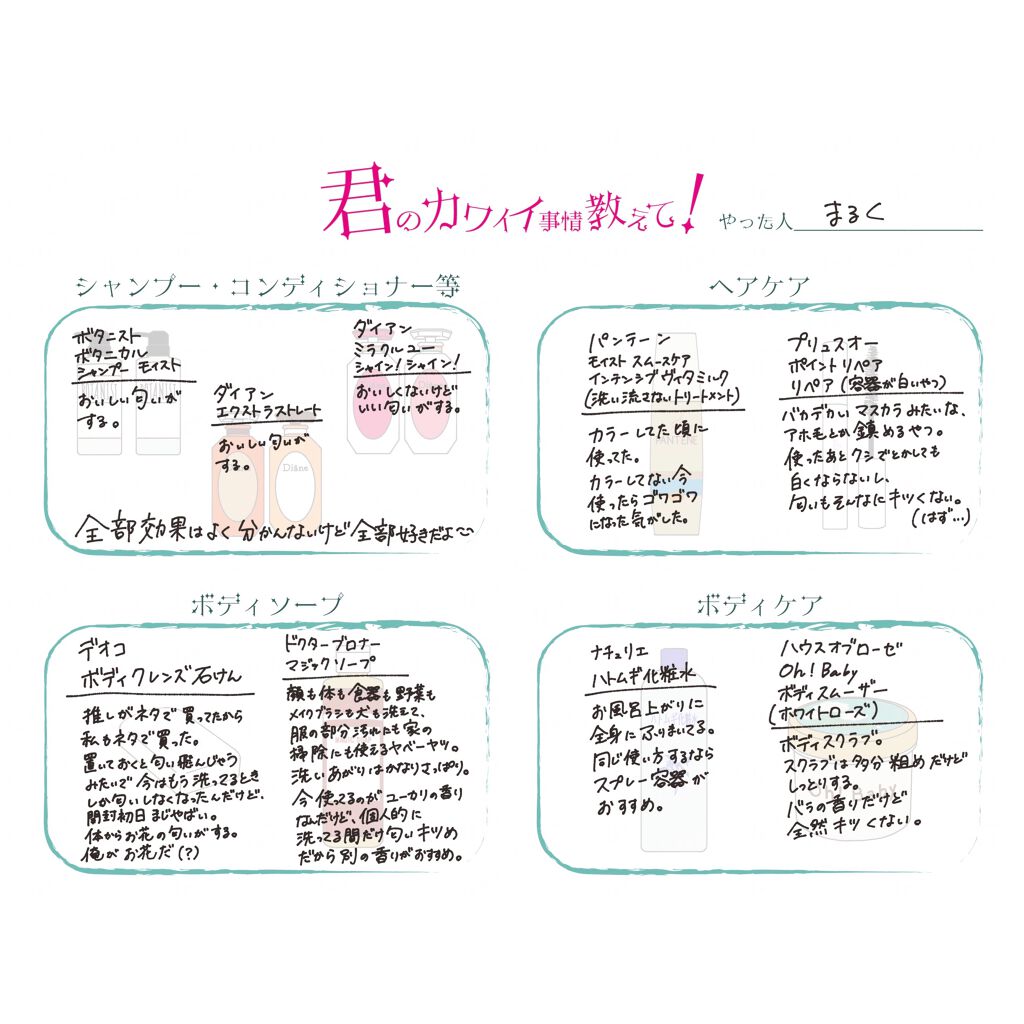 君のカワイイ事情教えて!
やった人 まるく
シャンプー・コンディショナー等
ボタニスト
ボタニカル
シャンプー モイスト
おいしい匂いが
する。
ダイアン
エクストラストレート
おいしい匂いが
する。
ダイアン
ミラクルユー
シャイン!シャイン!
おいしくないけど
いい匂いがする。
Diane
全部効果はよく分かんないけど全部好きだよ〜
ヘアケア
パンテーン
モイスト スムースケア
インテンシブ ヴィタミルク
(洗い流さないトリートメント)
カラーしてた頃に
使ってた。
カラーしてない今
使ったらゴワゴワ
になった気がした。
PANTENE
プリュスオー
ポイントリペア
リペア(容器が白いやつ)
バカデカいマスカラみたいな、
アホ毛とか鎮めるやつ。
使ったあとクシでとかしても
白くならないし、
匂いもそんなにキツくない。
(はず…)
ボディソープ
デオコ
ボディクレンズ石けん
推しがネタで買ってたから
私もネタで買った。
置いておくと匂い飛んじゃう
みたいで今はもう洗ってるとき
しか匂いしなくなったんだけど、
開封初日まじやばい。
体からお花の匂いがする。
俺がお花だ(?)
ドクターブロナー
マジックソープ
顔も体も食器も野菜も
メイクブラシも犬も洗えて、
服の部分汚れにも家の
掃除にも使えるヤベーヤツ。
洗いあがりはかなりさっぱり。
今使ってるのがユーカリの香り
なんだけど、個人的に
洗ってる間だけ匂いキツめ
だから別の香りがおすすめ。
ボディケア
ナチュリエ
ハトムギ化粧水
お風呂上がりに
全身にふりまいてる。
同じ使い方するなら
スプレー容器が
おすすめ。
ハウスオブローゼ
Oh! Baby
ボディスムーザー
(ホワイトローズ)
ボディスクラブ。
スクラブは多分粗めだけど
しっとりする。
バラの香りだけど
全然キツくない。
Oh! Baby